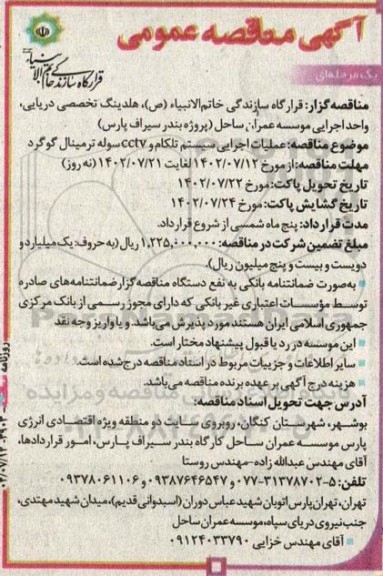 آگهی مناقصه عمومی
قرارگاه سازندگی خاتم الانبیاء
یک مرحله‌ای
مناقصه گزار: قرارگاه سازندگی خاتم‌الانبیاء (ص)، هلدینگ تخصصی دریایی،
واحد اجرایی موسسه عمران ساحل (پروژه بندر سیراف پارس)
موضوع مناقصه: عملیات اجرایی سیستم تلکام و cctv سوله ترمینال گوگرد
مهلت مناقصه: از مورخ ۱۴۰۲/۰۷/۱۲ لغایت ۱۴۰۲/۰۷/۲۱ (نه روز)
تاریخ تحویل پاکت: مورخ ۱۴۰۲/۰۷/۲۲
تاریخ گشایش پاکت: مورخ ۱۴۰۲/۰۷/۲۴
مدت قرارداد: پنج ماه شمسی از شروع قرارداد.
مبلغ تضمین شرکت در مناقصه: ۱,۲۲۵,۰۰۰,۰۰۰ ریال (به حروف: یک میلیارد و
دویست و بیست و پنج میلیون ریال).
به صورت ضمانتنامه بانکی به نفع دستگاه مناقصه گزار ضمانتنامه‌های صادره
توسط مؤسسات اعتباری غیر بانکی که دارای مجوز رسمی از بانک مرکزی
جمهوری اسلامی ایران هستند مورد پذیرش می‌باشد. و یا واریز وجه نقد
این موسسه در رد یا قبول پیشنهاد مختار است.
سایر اطلاعات و جزییات مربوط در اسناد مناقصه درج شده است.
هزینه درج آگهی بر عهده برنده مناقصه می‌باشد.
آدرس جهت تحویل اسناد مناقصه:
بوشهر، شهرستان کنگان، روبروی سایت دو منطقه ویژه اقتصادی انرژی
پارس موسسه عمران ساحل کارگاه بندر سیراف پارس، امور قراردادها،
آقای مهندس عبدالله زاده-مهندس روستا
تلفن: ۵-۳۱۳۷۸۷۰۲-۰۷۷ و ۰۹۳۸۷۶۴۶۵۴۷ و ۰۹۳۷۸۰۶۱۱۰۶
تهران، تهران پارس اتوبان شهید عباس دوران (اسبدوانی قدیم)، میدان شهید مهتدی،
جنب نیروی دریای سپاه، موسسه عمران ساحل
آقای مهندس خزایی ۰۹۱۲۴۰۳۳۷۹۰